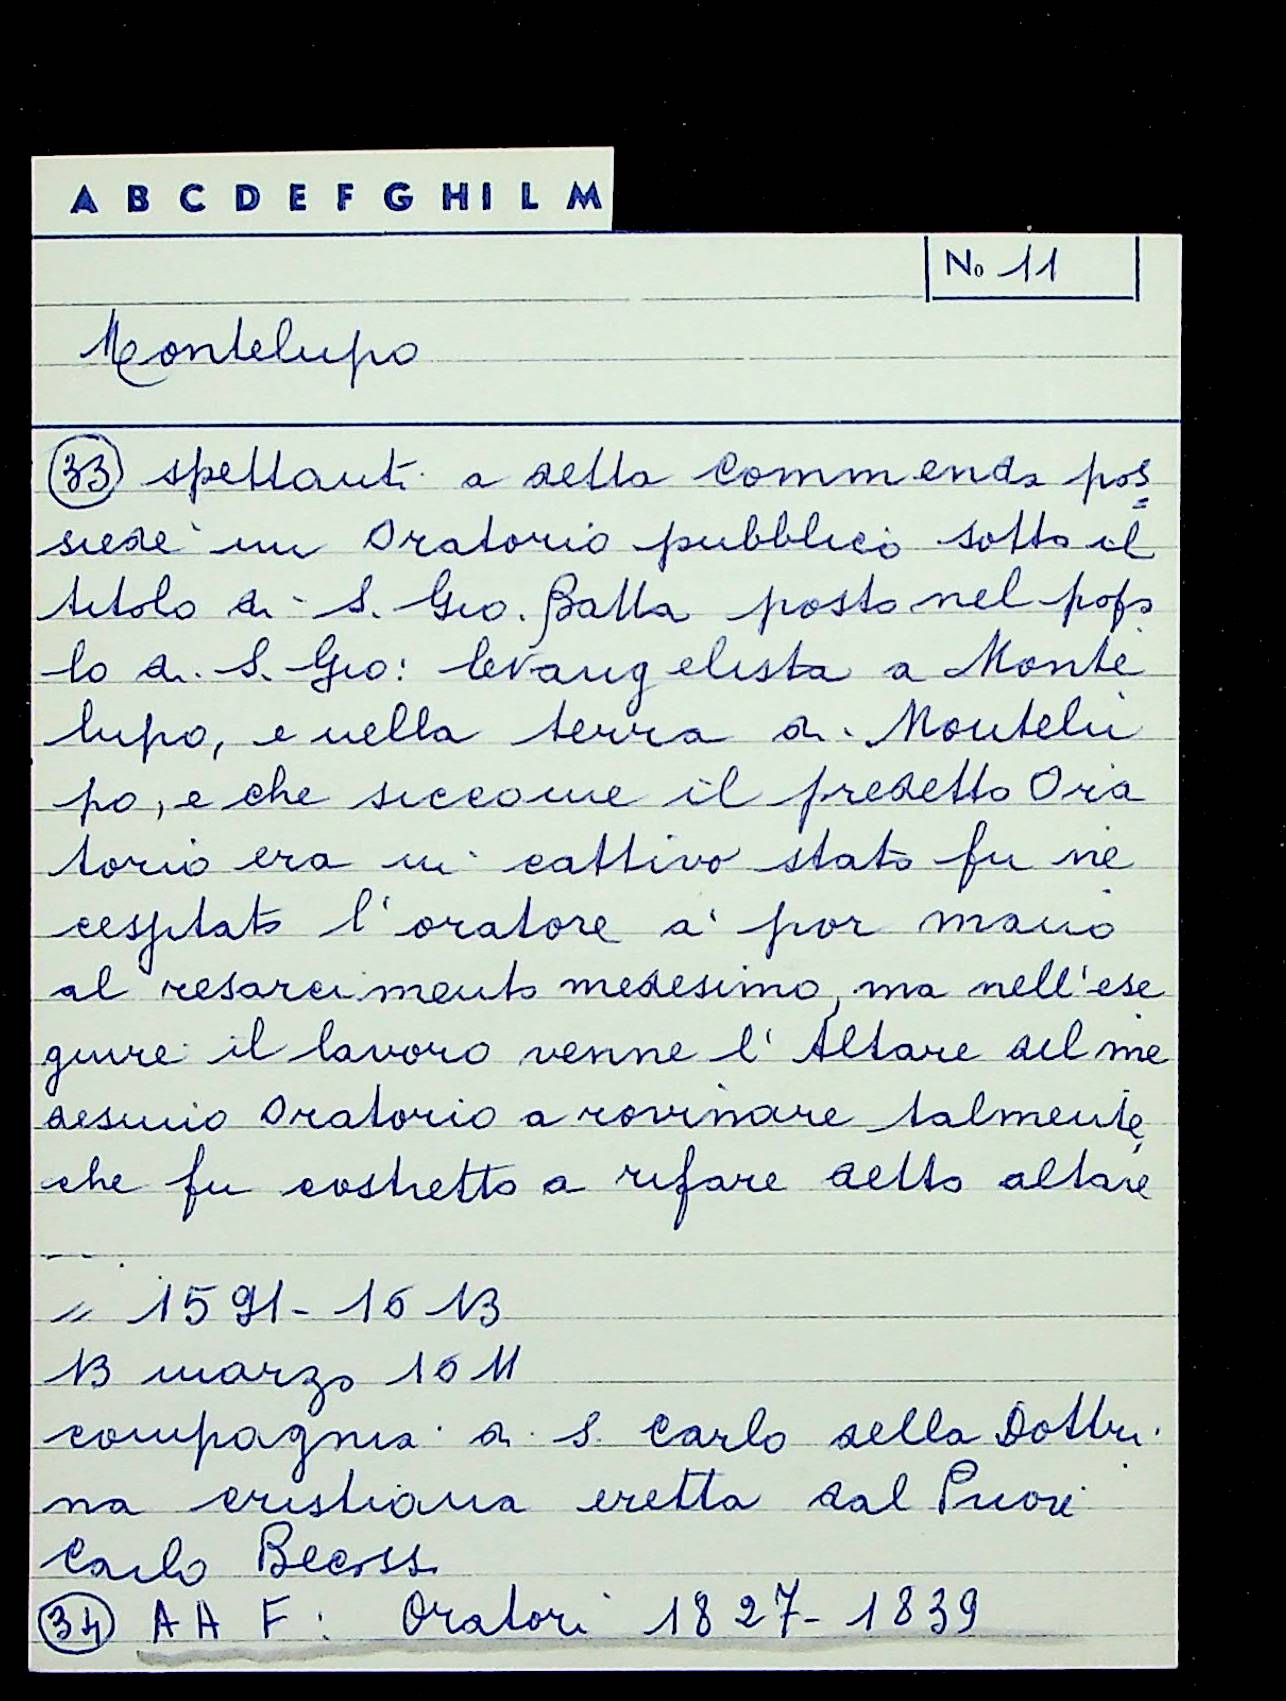 A B C D E F G H I L M
No 11
Montelupo
33 spettanti a detta Commenda pos=
siede un Oratorio pubblico sotto il
titolo di S. Gio. Batta posto nel popo
lo di S. Gio: Evangelista a Monte
lupo, e nella terra di Montelu
po, e che siccome il predetto Ora
torio era in cattivo stato fu ne
cessitato l'oratore a por mano
al resarcimento medesimo, ma nell'ese
guire il lavoro venne l'Altare del me
desimo Oratorio a rovinare talmente,
che fu costretto a rifare detto altare
...
" 1591-1613
13 marzo 1611
compagnia di S. Carlo della Dottri
na cristiana eretta dal Priore
Carlo
34 A A F: Oratori 1827-1839